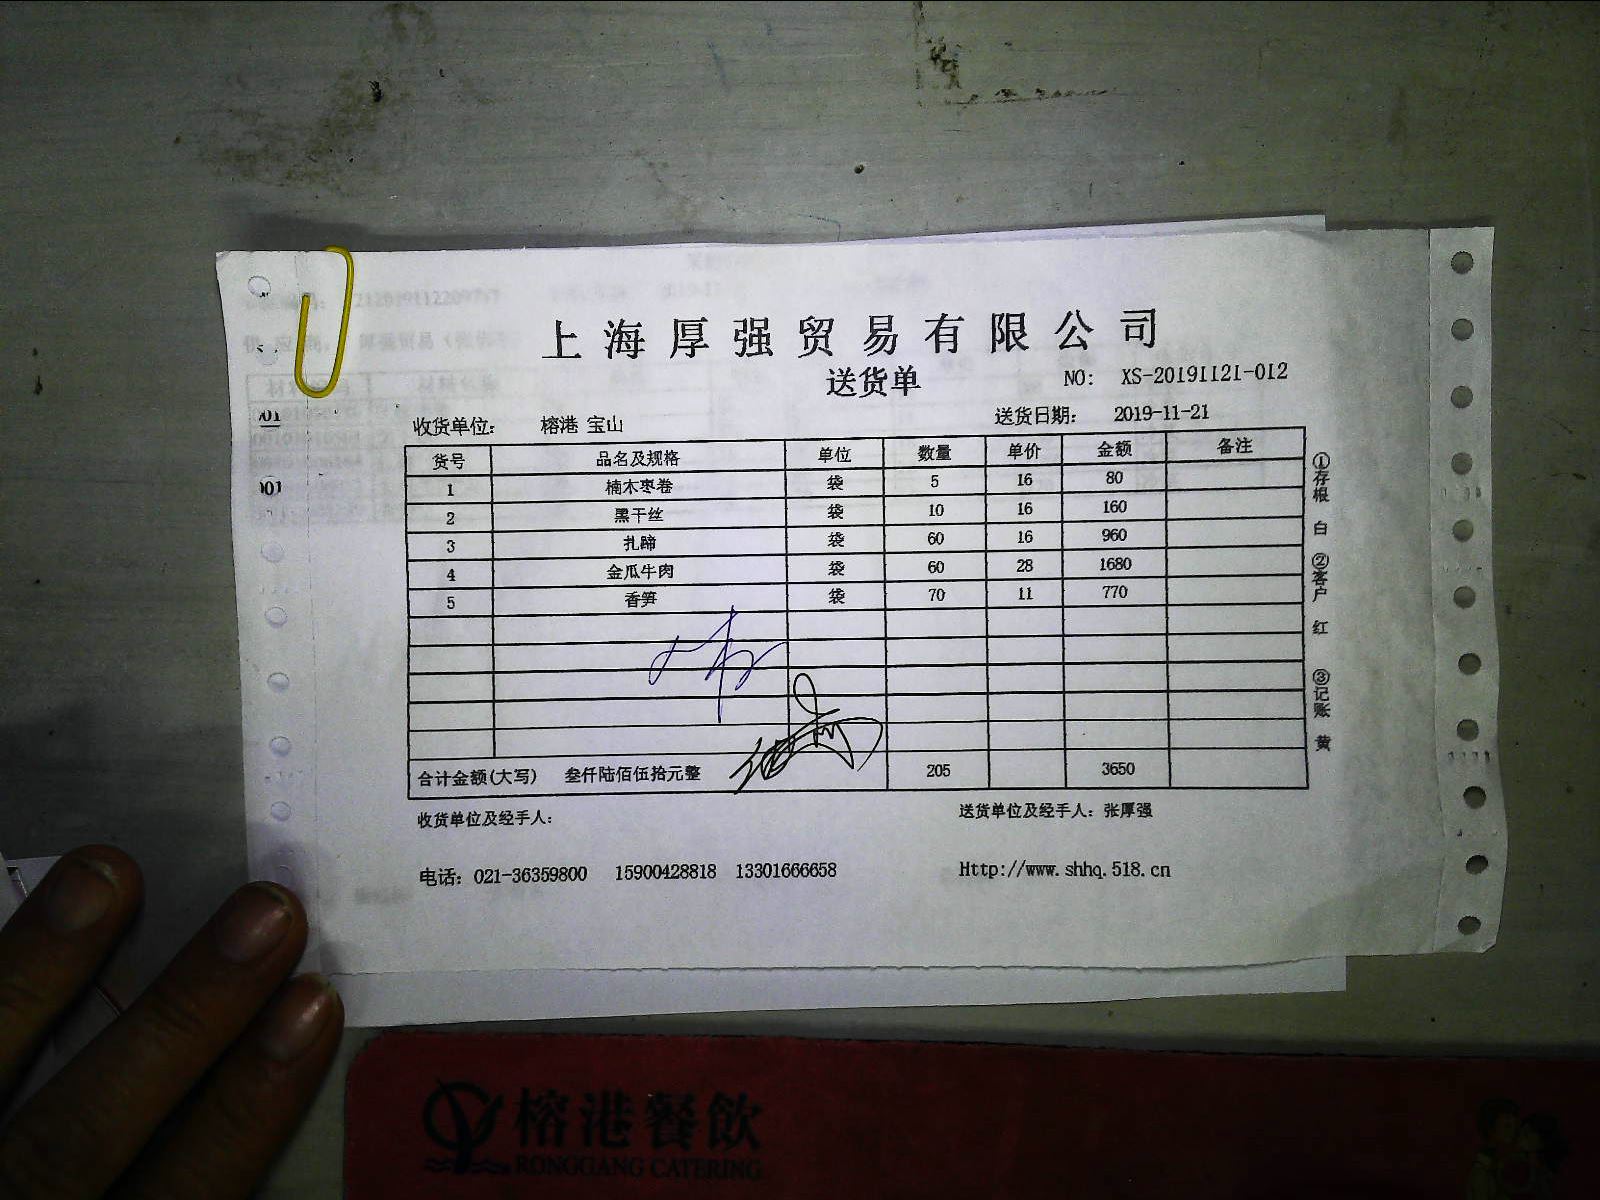 上海厚强贸易有限公司
送货单 NO: XS-20191121-012
收货单位: 榕港 宝山 送货日期: 2019-11-21
货号 品名及规格 单位 数量 单价 金额 备注
1 楠木枣卷 袋 5 16 80
2 黑干丝 袋 10 16 160
3 扎蹄 袋 60 16 960
4 金瓜牛肉 袋 60 28 1680
5 香笋 袋 70 11 770
合计金额(大写) 叁仟陆佰伍拾元整 205 3650
收货单位及经手人: 送货单位及经手人: 张厚强
电话: 021-36359800 15900428818 13301666658 Http://www.shhq.518.cn
①存根 白 ②客户 红 ③记账 黄
榕港餐飲
RONGGANG CATERING